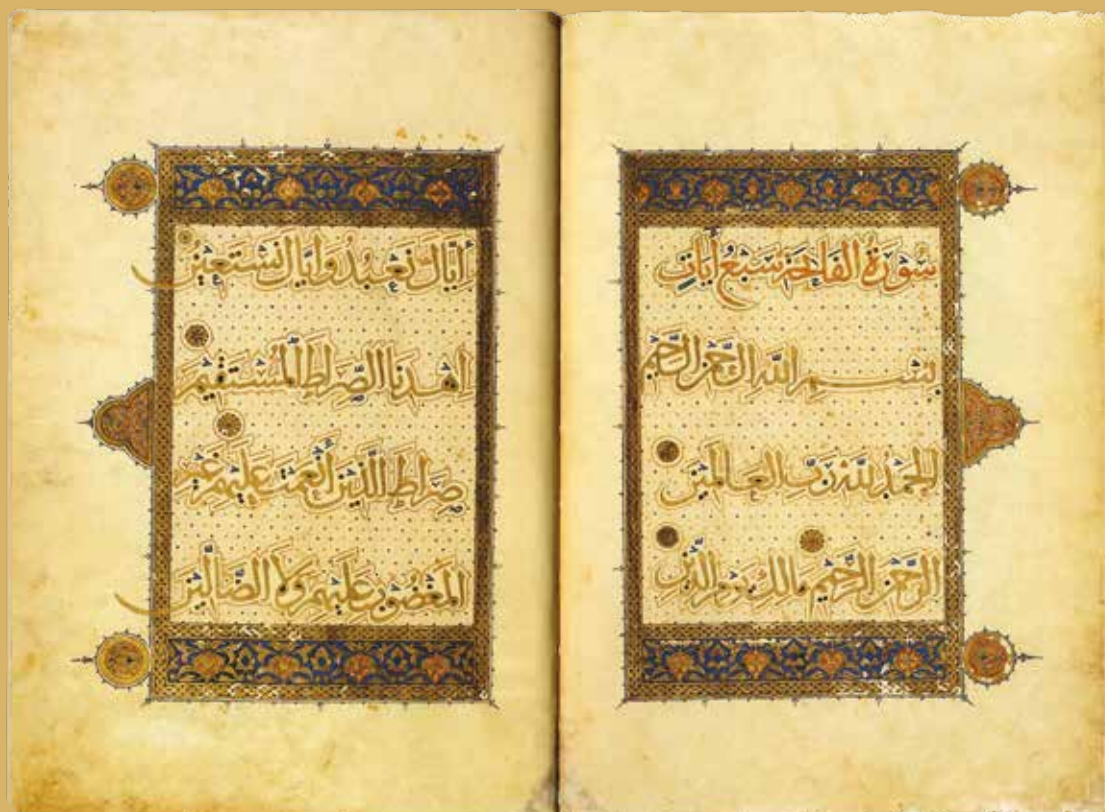 سُورَةُ الْفَاتِحَةِ سَبْعُ آيَاتٍ
بِسْمِ اللَّهِ الرَّحْمٰنِ الرَّحِيمِ
الْحَمْدُ لِلَّهِ رَبِّ الْعَالَمِينَ
الرَّحْمٰنِ الرَّحِيمِ مَالِكِ يَوْمِ الدِّينِ
إِيَّاكَ نَعْبُدُ وَإِيَّاكَ نَسْتَعِينُ
اهْدِنَا الصِّرَاطَ الْمُسْتَقِيمَ
صِرَاطَ الَّذِينَ أَنْعَمْتَ عَلَيْهِمْ غَيْرِ
الْمَغْضُوبِ عَلَيْهِمْ وَلَا الضَّالِّينَ